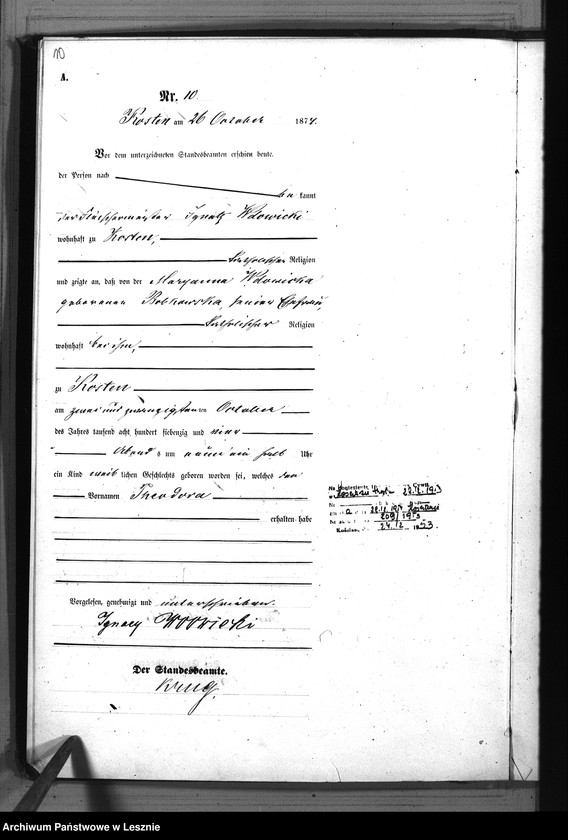 10
A.
Nr. 10.
Kosten am 26 October 1874.
Vor dem unterzeichneten Standesbeamten erschien heute,
der Person nach
be kannt
der Fleischermeister Ignatz
wohnhaft zu Kosten,
katholischer Religion
und zeigte an, daß von der Maryanna
geborenen Bobkowska, seiner Ehefrau,
katholischer Religion
wohnhaft bei ihm,
zu Kosten
am zwei und zwanzigsten ten October
des Jahres tausend acht hundert siebenzig und vier
Abend s um neun ein halb Uhr
ein Kind weib lichen Geschlechts geboren worden sei, welches den
Vornamen Theodora
erhalten habe
Vorgelesen, genehmigt und unterschrieben.
Ignacy
Der Standesbeamte.
Krug.
22.12.1953
209/1953
24.12. 1953.
Archiwum Państwowe w Lesznie